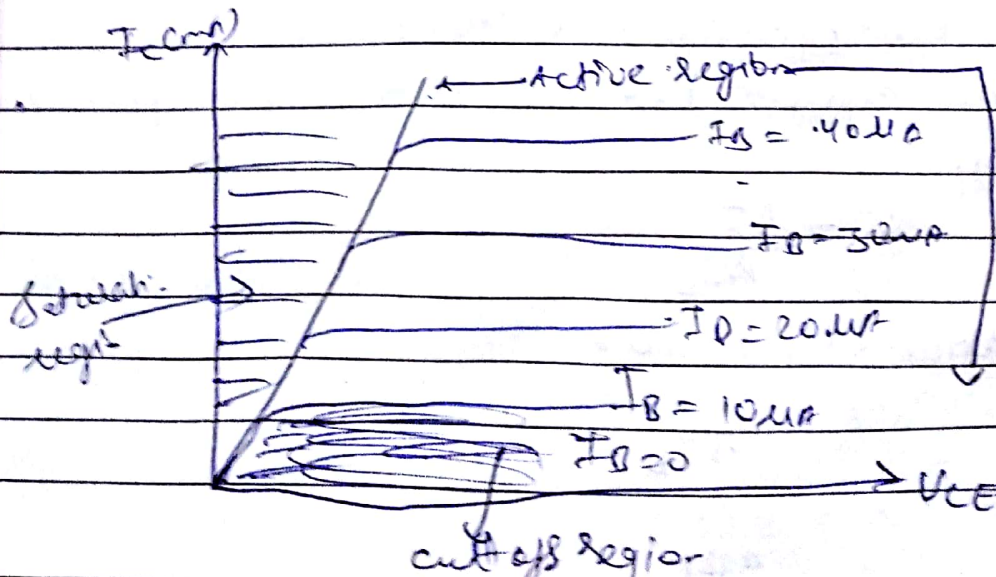 Ic(mA)
Active region
IB = 40μA
IB = 30μA
IB = 20μA
IB = 10μA
IB=0
VCE
cut off region